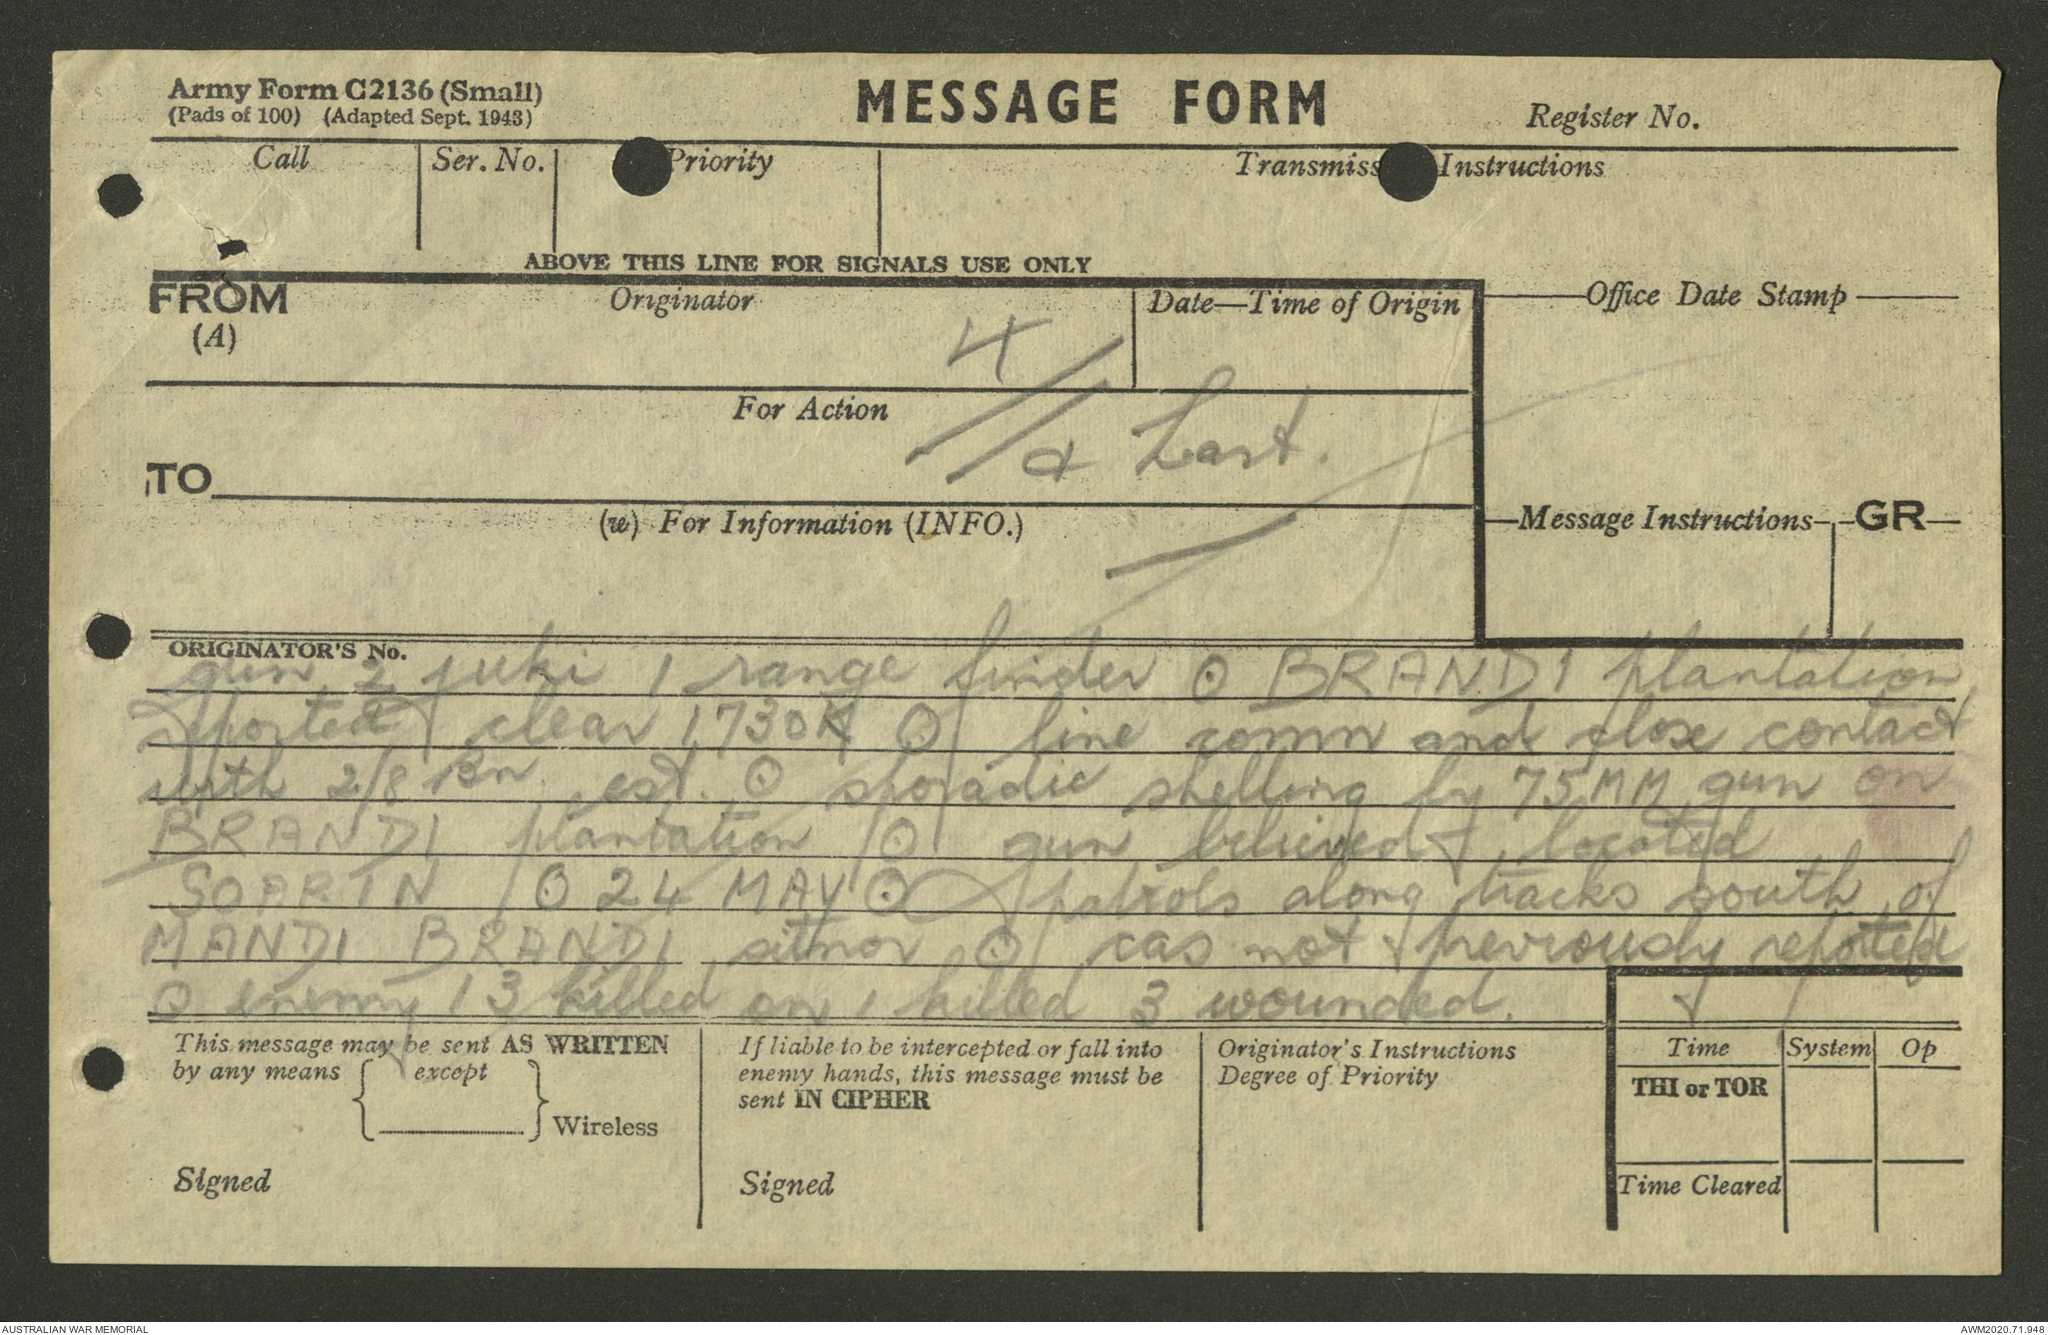 Army Form C2136 (Small)
(Pads of 100) (Adapted Sept. 1943)
MESSAGE FORM
Register No.
Call
Ser. No.
Priority
Transmiss Instructions
ABOVE THIS LINE FOR SIGNALS USE ONLY
FROM
(A)
Originator
Date—Time of Origin
Office Date Stamp
4
For Action
& Last.
TO
(w) For Information (INFO.)
Message Instructions
GR
ORIGINATOR'S No.
gun 2 juki 1 range finder ʘ BRANDI plantation
reported clear 1730K ʘ line comn and close contact
with 2/8 Bn est. ʘ sporadic shelling by 75MM gun on
BRANDI plantation ʘ gun believed located
SOARIN ʘ 24 MAY ʘ patrols along tracks south of
MANDI BRANDI sitnor ʘ cas not previously reported
ʘ enemy 13 killed own 1 killed 3 wounded.
This message may be sent AS WRITTEN
by any means except
Wireless
Signed
If liable to be intercepted or fall into
enemy hands, this message must be
sent IN CIPHER
Signed
Originator's Instructions
Degree of Priority
Time
System
Op
THI or TOR
Time Cleared
AUSTRALIAN WAR MEMORIAL
AWM2020.71.948